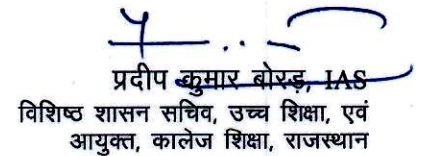 प्रदीप कुमार बोरड़, IAS
विशिष्ठ शासन सचिव, उच्च शिक्षा, एवं
आयुक्त, कालेज शिक्षा, राजस्थान